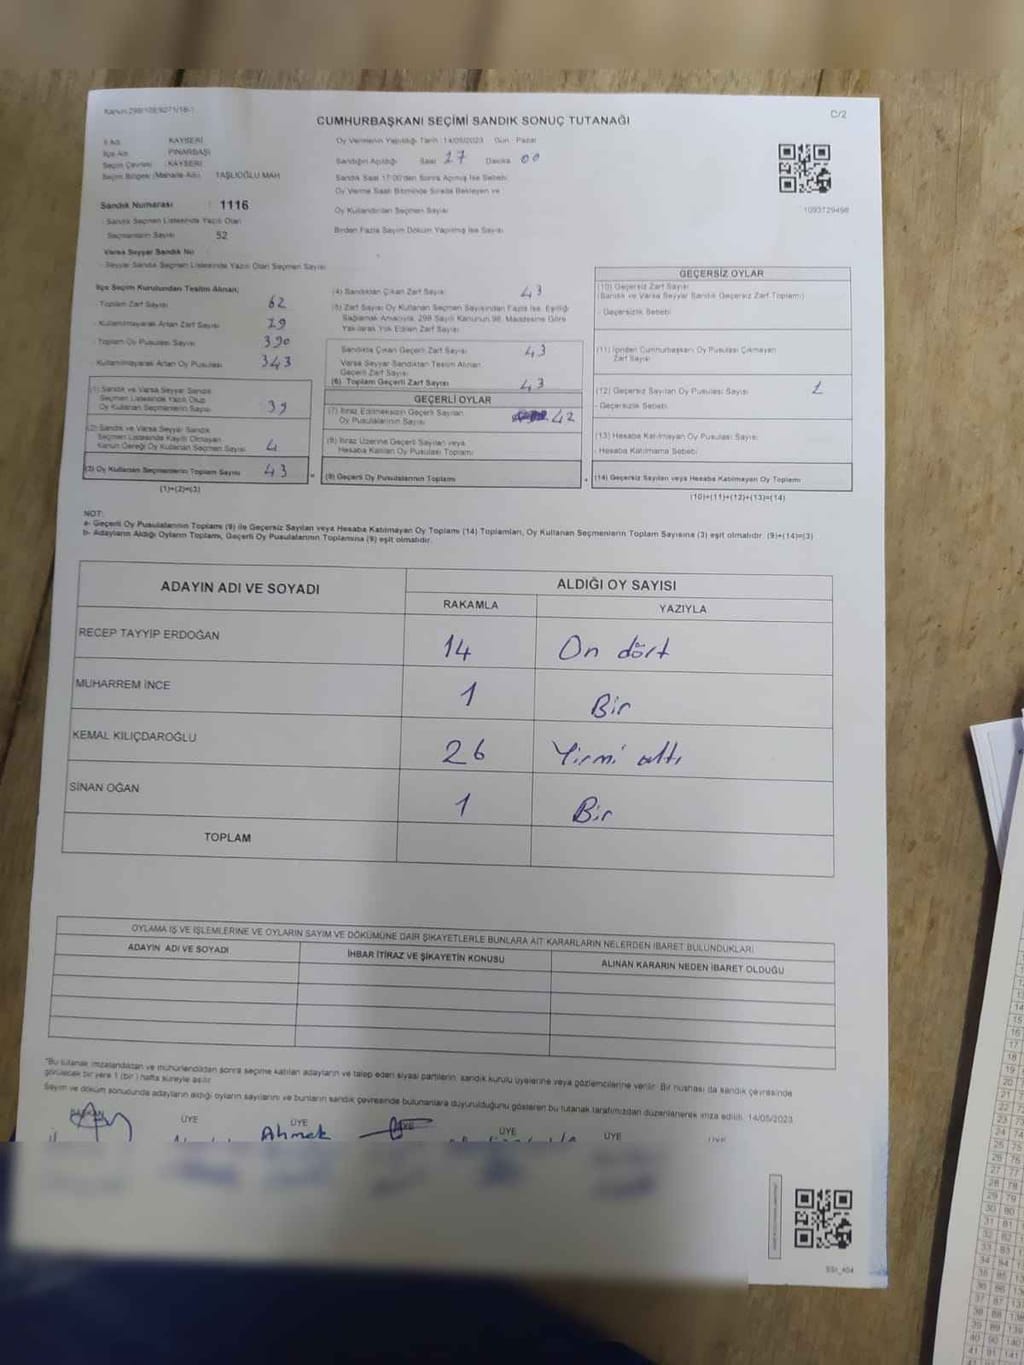 C/2
CUMHURBAŞKANI SEÇİMİ SANDIK SONUÇ TUTANAĞI
İl Adı KAYSERİ
İlçe Adı PINARBAŞI
Seçim Çevresi KAYSERİ
Seçim Bölgesi (Mahalle Adı) TAŞLIOĞLU MAH
Sandık Numarası : 1116
Sandık Seçmen Listesinde Yazılı Olan
Seçmenlerin Sayısı 52
Varsa Seyyar Sandık No
Seyyar Sandık Seçmen Listesinde Yazılı Olan Seçmen Sayısı
Oy Vermenin Yapıldığı Tarih : 14/05/2023 Gün : Pazar
Sandığın Açıldığı Saat 17 Dakika 00
Sandık Saat 17:00'den Sonra Açılmış İse Sebebi
Oy Verme Saati Bitiminde Sırada Bekleyen ve
Oy Kullandırılan Seçmen Sayısı
Birden Fazla Sayım Döküm Yapılmış İse Sayısı
1093729498
İlçe Seçim Kurulundan Teslim Alınan;
Toplam Zarf Sayısı 62
Kullanılmayarak Artan Zarf Sayısı 19
Toplam Oy Pusulası Sayısı 390
Kullanılmayarak Artan Oy Pusulası 343
(1) Sandık ve Varsa Seyyar Sandık
Seçmen Listesinde Yazılı Olup
Oy Kullanan Seçmenlerin Sayısı 39
(2) Sandık ve Varsa Seyyar Sandık
Seçmen Listesinde Kayıtlı Olmayan
Kanun Gereği Oy Kullanan Seçmen Sayısı 4
(3) Oy Kullanan Seçmenlerin Toplam Sayısı 43
(1)+(2)=(3)
(4) Sandıktan Çıkan Zarf Sayısı 43
(5) Zarf Sayısı Oy Kullanan Seçmen Sayısından Fazla İse, Eşitliği
Sağlamak Amacıyla, 298 Sayılı Kanunun 98. Maddesine Göre
Yakılarak Yok Edilen Zarf Sayısı
Sandıkta Çıkan Geçerli Zarf Sayısı 43
Varsa Seyyar Sandıktan Teslim Alınan
Geçerli Zarf Sayısı
(6) Toplam Geçerli Zarf Sayısı 43
GEÇERLİ OYLAR
(7) İtiraz Edilmeksizin Geçerli Sayılan
Oy Pusulalarının Sayısı 42
(8) İtiraz Üzerine Geçerli Sayılan veya
Hesaba Katılan Oy Pusulası Toplamı
(9) Geçerli Oy Pusulalarının Toplamı
GEÇERSİZ OYLAR
(10) Geçersiz Zarf Sayısı
(Sandık ve Varsa Seyyar Sandık Geçersiz Zarf Toplamı)
- Geçersizlik Sebebi
(11) İçinden Cumhurbaşkanı Oy Pusulası Çıkmayan
Zarf Sayısı
(12) Geçersiz Sayılan Oy Pusulası Sayısı 1
- Geçersizlik Sebebi
(13) Hesaba Katılmayan Oy Pusulası Sayısı
- Hesaba Katılmama Sebebi
(14) Geçersiz Sayılan veya Hesaba Katılmayan Oy Toplamı
(10)+(11)+(12)+(13)=(14)
NOT:
a- Geçerli Oy Pusulalarının Toplamı (9) ile Geçersiz Sayılan veya Hesaba Katılmayan Oy Toplamı (14) Toplamları, Oy Kullanan Seçmenlerin Toplam Sayısına (3) eşit olmalıdır. (9)+(14)=(3)
b- Adayların Aldığı Oyların Toplamı, Geçerli Oy Pusulalarının Toplamına (9) eşit olmalıdır.
ADAYIN ADI VE SOYADI ALDIĞI OY SAYISI
RAKAMLA YAZIYLA
RECEP TAYYİP ERDOĞAN 14 On dört
MUHARREM İNCE 1 Bir
KEMAL KILIÇDAROĞLU 26 Yirmi altı
SİNAN OĞAN 1 Bir
TOPLAM
OYLAMA İŞ VE İŞLEMLERİNE VE OYLARIN SAYIM VE DÖKÜMÜNE DAİR ŞİKAYETLERLE BUNLARA AİT KARARLARIN NELERDEN İBARET BULUNDUKLARI
ADAYIN ADI VE SOYADI İHBAR İTİRAZ VE ŞİKAYETİN KONUSU ALINAN KARARIN NEDEN İBARET OLDUĞU
*Bu tutanak imzalandıktan ve mühürlendikten sonra seçime katılan adayların ve talep eden siyasi partilerin, sandık kurulu üyelerine veya gözlemcilerine verilir. Bir nüshası da sandık çevresinde
görülecek bir yere 1 (bir) hafta süreyle asılır.
Sayım ve döküm sonucunda adayların aldığı oyların sayılarını ve bunların sandık çevresinde bulunanlara duyurulduğunu gösteren bu tutanak tarafımızdan düzenlenerek imza edildi. 14/05/2023
BAŞKAN ÜYE ÜYE ÜYE ÜYE ÜYE
Ahmek